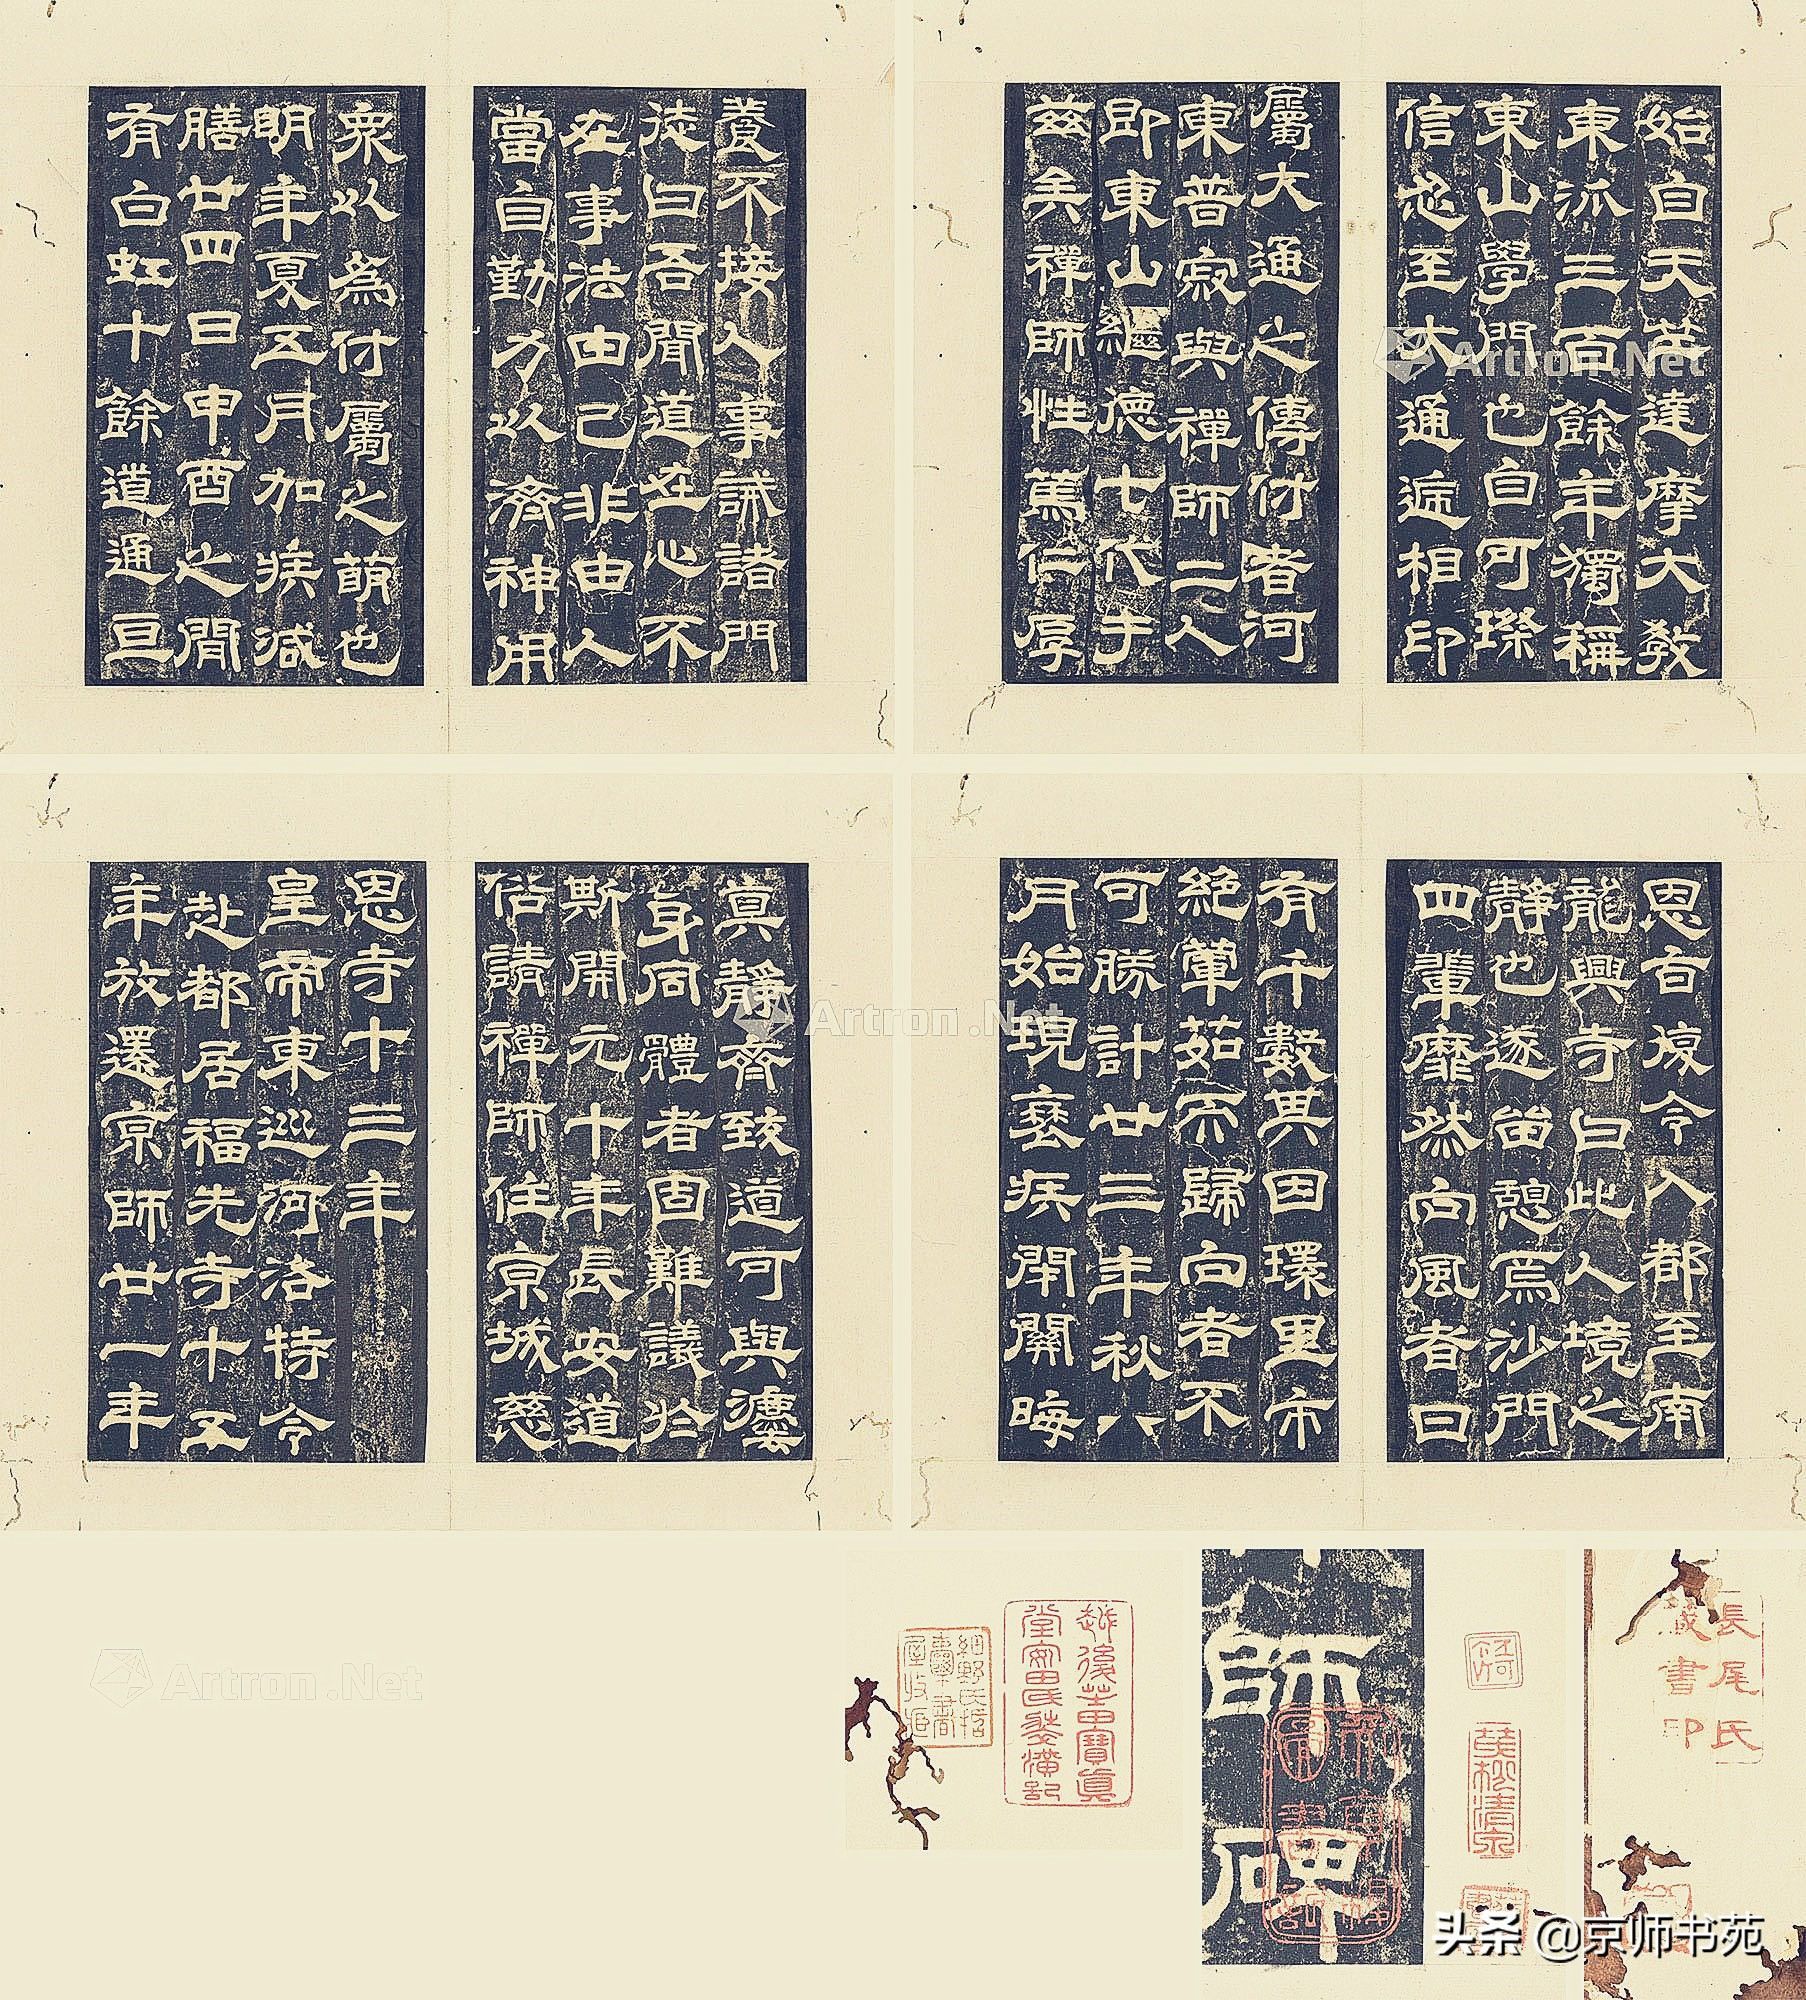 始自天竺達摩大教
東派三百餘年獨稱
東山學門也自可璨
信忍至大通遞相印
屬大通之傳付者河
東普寂與禪師二人
即東山繼德七代于
茲矣禪師性篤仁厚
養不接人事誡諸門
徒曰吾聞道在心不
在事法由己非由人
當自勤力以濟神用
眾以為付屬之萌也
明年夏五月加疾減
膳廿四日申酉之間
有白虹十餘道通亘
恩旨復令入都至南
龍興寺曰此人境之
靜也遂留憩焉沙門
四輩靡然向風者日
有千數其因環里市
絕葷茹而歸向者不
可勝計廿三年秋八
月始現衰疾閉關晦
真靜齊致道可與灋
身同體者固難議於
斯開元十年長安道
俗請禪師住京城慈
恩寺十三年
皇帝東巡河洛特令
赴都居福先寺十五
年放還京師廿一年
長尾氏
藏書印
師碑
越後芝田寶真
堂安田氏裝潢記
Artron.Net
Artron.Net
Artron.Net
头条 @京师书苑